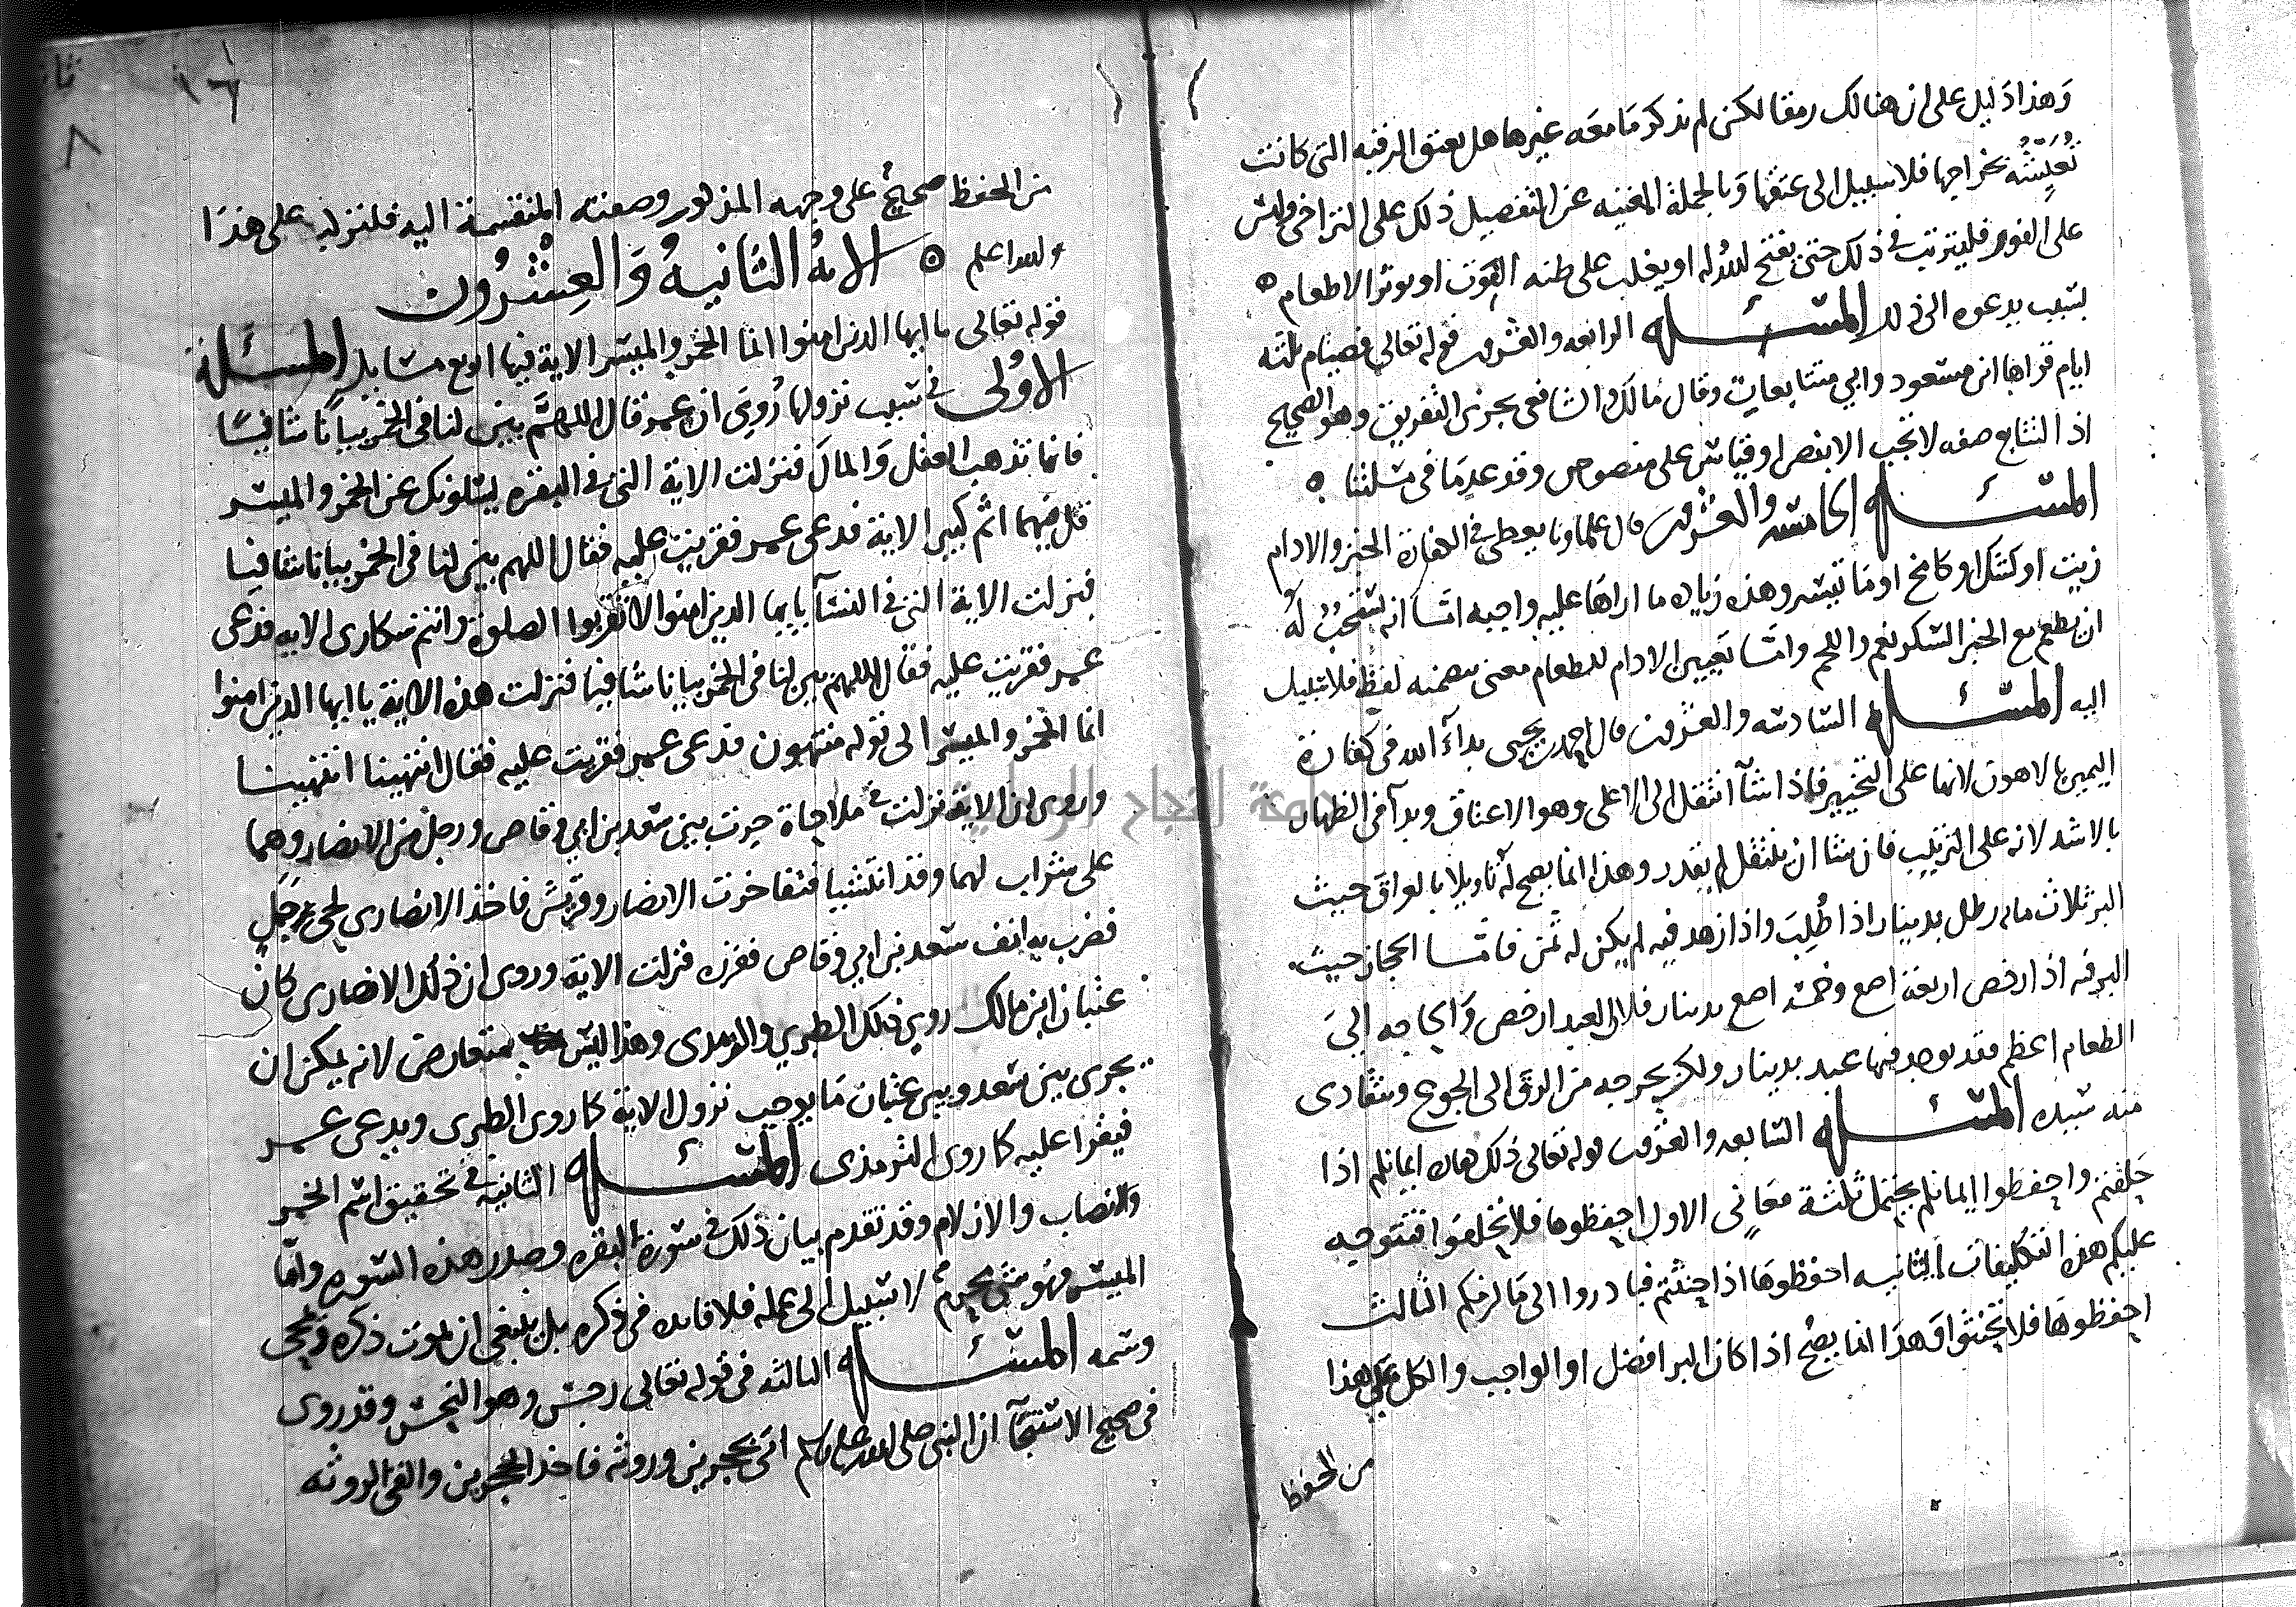 وهذا دليل على ان هنالك رمقا لكن لم نذكر ما معه غيرها هل يعتق الرقبه التى كانت
تُعيشه بخراجها فلا سبيل الى عتقها وبالجملة المغنيه عن التفصيل ذلك على التراخى وليس
على الفور فليترتب فى ذلك حتى يفتح الله له او يغلب على ظنه الفوت او يوثر الاطعام
بسبب يدعوه الى ذلك المسئله الرابعه والعشرون قوله تعالى فصيام ثلثه
ايام قراها ابن مسعود وابي متتابعات وقال مالك والشافعى يجزى التفريق وهو الصحيح
اذ التتابع صفه لا تجب الا بنص او قياس على منصوص وقد عدما فى مسلتنا
المسئله الخامسه والعشرون قال علماونا يعطى فى الكفارة الخبز والادام
زيت او كشك او كامخ او ما تيسر وهذه زياده ما اراها عليه واجبه اما انه يستحب له
ان يطعم مع الخبز السكر نعم واللحم واما تعيين الادام للطعام معنى يتضمنه لفظ فلا سبيل
اليه المسئله السادسه والعشرون قال احمد بن يحيى بدآء الله فى كفارة
اليمين بالاهون لانها على التخيير فاذا شآ انتقل الى الاعلى وهو الاعتاق وبدآ فى الظهار
بالاشد لانه على الترتيب فان شا ان ينتقل لم يقدر وهذا انما يصح له تاويلا بالعراق حيث
البر ثلاث مايه رطل بدينار اذا طُلِبَ واذا زهد فيه لم يكن له ثمن فاما الحجاز حيث
البر فيه اذا رخص اربعة اصع وخمسه اصع بدينار فلان العبد ارخص والحاجه الى
الطعام اعظم فقد يوجد فيها عبد بدينار ولكن يخرجه من الرق الى الجوع ويتفادى
منه سيده المسئله السابعه والعشرون قوله تعالى ذلك كفاره ايمانكم اذا
حلفتم واحفظوا ايمانكم يحتمل ثلثة معانى الاول احفظوها فلا تحلفوا فتتوجه
عليكم هذه التكليفات الثانيه احفظوها اذا حنثتم فبادروا الى ما لزمكم الثالث
احفظوها فلا تحنثوا وهذا انما يصح اذا كان البر افضل او الواجب والكل على هذا
من الحفظ
١٦
٨
من الحفظ صحيح على وجهه المذكور وصفته المنقسمة اليه فلننزله على هذا
والله اعلم الايه الثانيه والعشرون
قوله تعالى يا ايها الذين امنوا انما الخمر والميسر الاية فيها اربع مسايل المسئلة
الاولى فى سبب نزولها رُوِىَ ان عمر قال اللهم بين لنا فى الخمر بيانا شافيا
فانها تذهب العقل والمال فنزلت الاية التى فى البقره يسلونك عن الخمر والميسر
قل فيهما اثم كبير الاية فدعى عمر فقريت عليه فقال اللهم بين لنا فى الخمر بيانا شافيا
فنزلت الاية التى فى النسآ يايها الذين امنوا لا تقربوا الصلوة وانتم سكارى الايه فدعى
عمر فقريت عليه فقال اللهم بين لنا فى الخمر بيانا شافيا فنزلت هذه الاية يا ايها الذين امنوا
انما الخمر والميسر الى قوله منتهون فدعى عمر فقريت عليه فقال انتهينا انتهينا
وروى ان الاية نزلت فى ملاحاة جرت بين سعد بن ابي وقاص ورجل من الانصار وهما
على شراب لهما وقد انتشيا فتفاخرت الانصار وقريش فاخذ الانصارى لحى جمل
فضرب به انف سعد بن ابي وقاص ففزره فنزلت الاية وروى ان ذلك الانصارى كان
عتبان ابن مالك روى ذلك الطبري والترمدى وهذا ليس بمتعارض لانه يمكن ان
يجرى بين سعد وبين عتبان ما يوجب نزول الاية كما روى الطبرى ويدعى عمر
فيقرا عليه كما روى الترمذى المسئله الثانيه فى تحقيق اسم الخمر
والانصاب والازلام وقد تقدم بيان ذلك فى سورة البقره وصدر هذه السوره واما
الميسر فهو شى محرم لا سبيل الى عمله فلا فايده فى ذكره بل ينبغى ان يموت ذكره ويمحى
وسمه المسئله الثالثه فى قوله تعالى رجس وهو النجس وقد روى
فى صحيح الاستنجآ ان النبى صلى الله عليه وسلم اتى بحجرين وروثه فاخذ الحجرين والقى الروثه